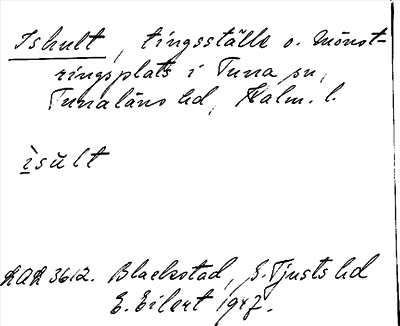 Ishult, tingsställe o. mönst-
ringsplats i Tuna sn,
Tunaläns hd, Kalm. l.
ìsŭlt
3612. Blackstad, S. Tjusts hd
E. Eilert 1927.